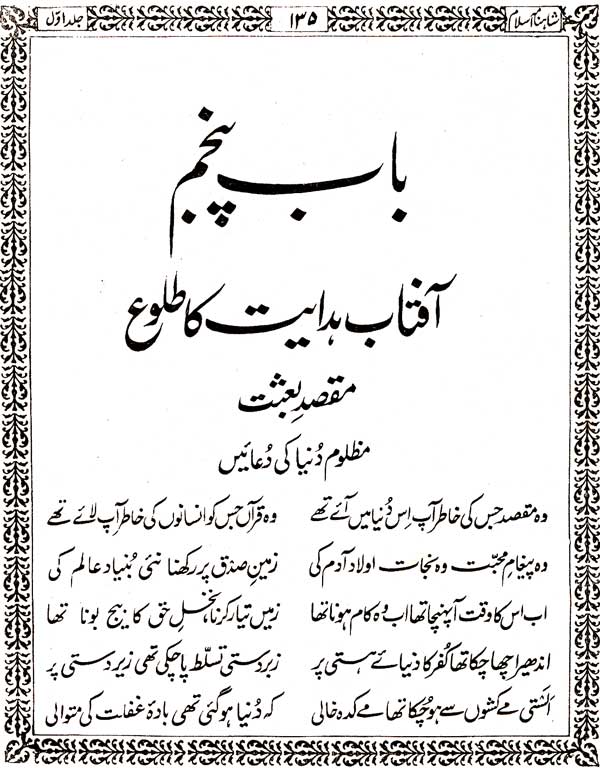 شاہنامہ اسلام ۱۳۵ جلد اوّل
باب پنجم
آفتاب ہدایت کا طلوع
مقصدِ بعثت
مظلوم دُنیا کی دُعائیں
وہ مقصد جس کی خاطر آپ اِس دُنیا میں آئے تھے وہ قرآں جس کو انسانوں کی خاطر آپ لائے تھے
وہ پیغامِ محبّت وہ نجات اولادِ آدم کی زمینِ صدق پر رکھنا نئی بُنیاد عالم کی
اب اس کا وقت آپہنچا تھا اب وہ کام ہونا تھا زمیں تیار کرنا، نخلِ حق کا بیج بونا تھا
اندھیرا چھا چکا تھا کُفر کا دنیائے ہستی پر زبردستی تسلّط پا چکی تھی زیردستی پر
الستی مے کشوں سے ہو چُکا تھا مے کدہ خالی کہ دُنیا ہو گئی تھی بادۂ غفلت کی متوالی